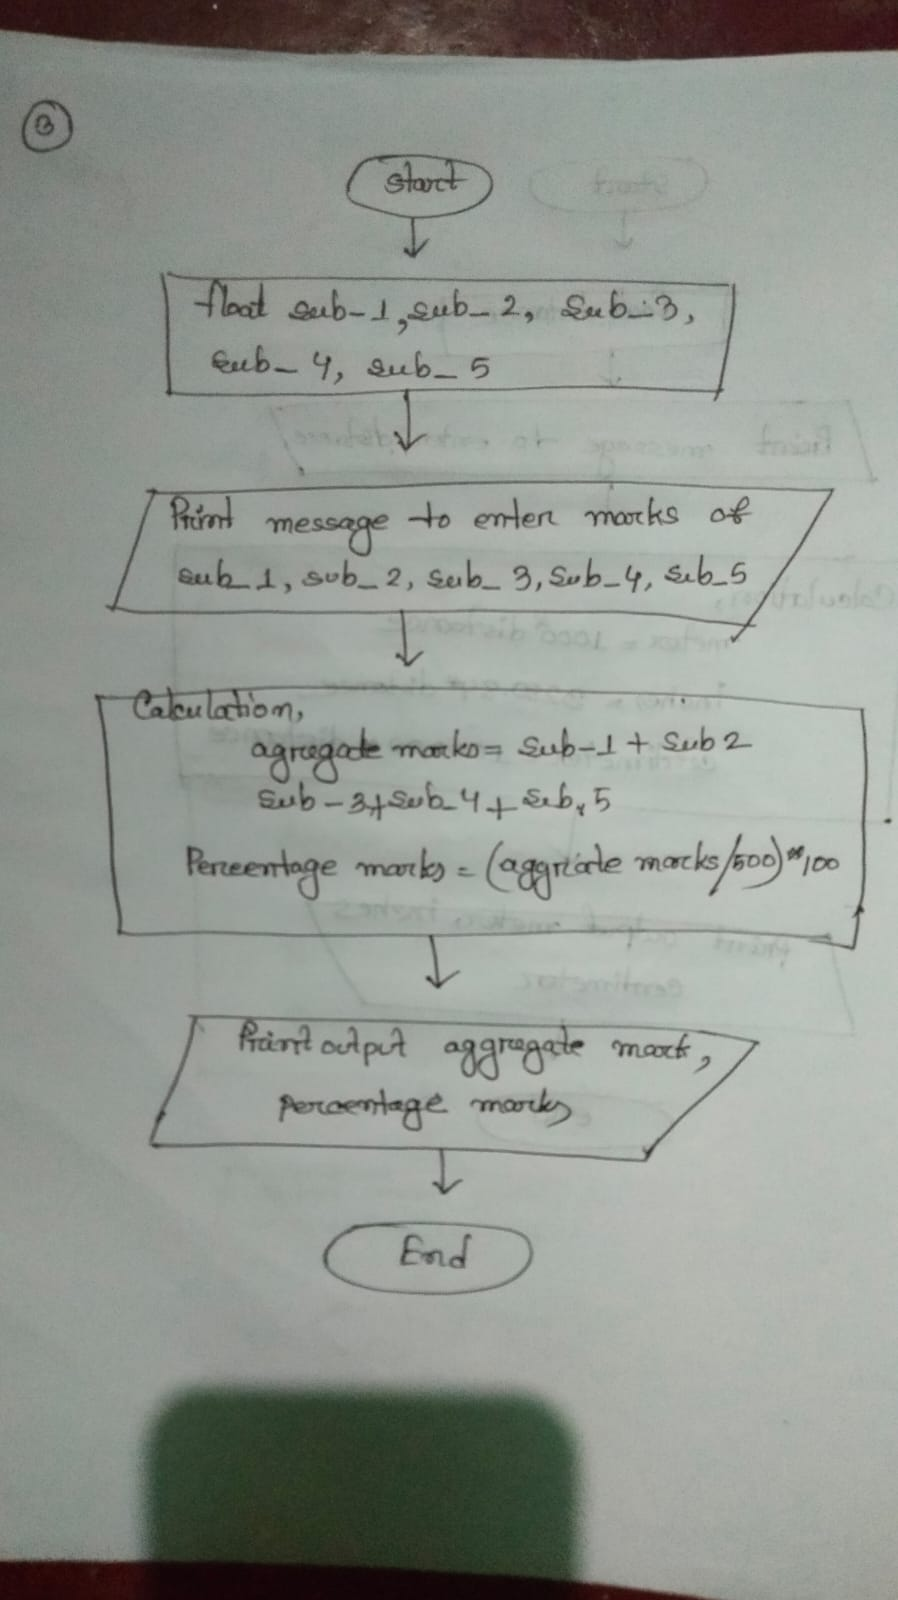 3
Start
float sub-1, sub-2, sub-3,
sub-4, sub-5
Print message to enter marks of
sub_1, sub_2, sub_3, sub_4, sub_5
Calculation,
agregate marks = sub-1 + sub 2
sub-3 + sub_4 + sub, 5
Percentage marks = (aggriate marks/500) * 100
Print output aggregate mark,
percentage marks
End